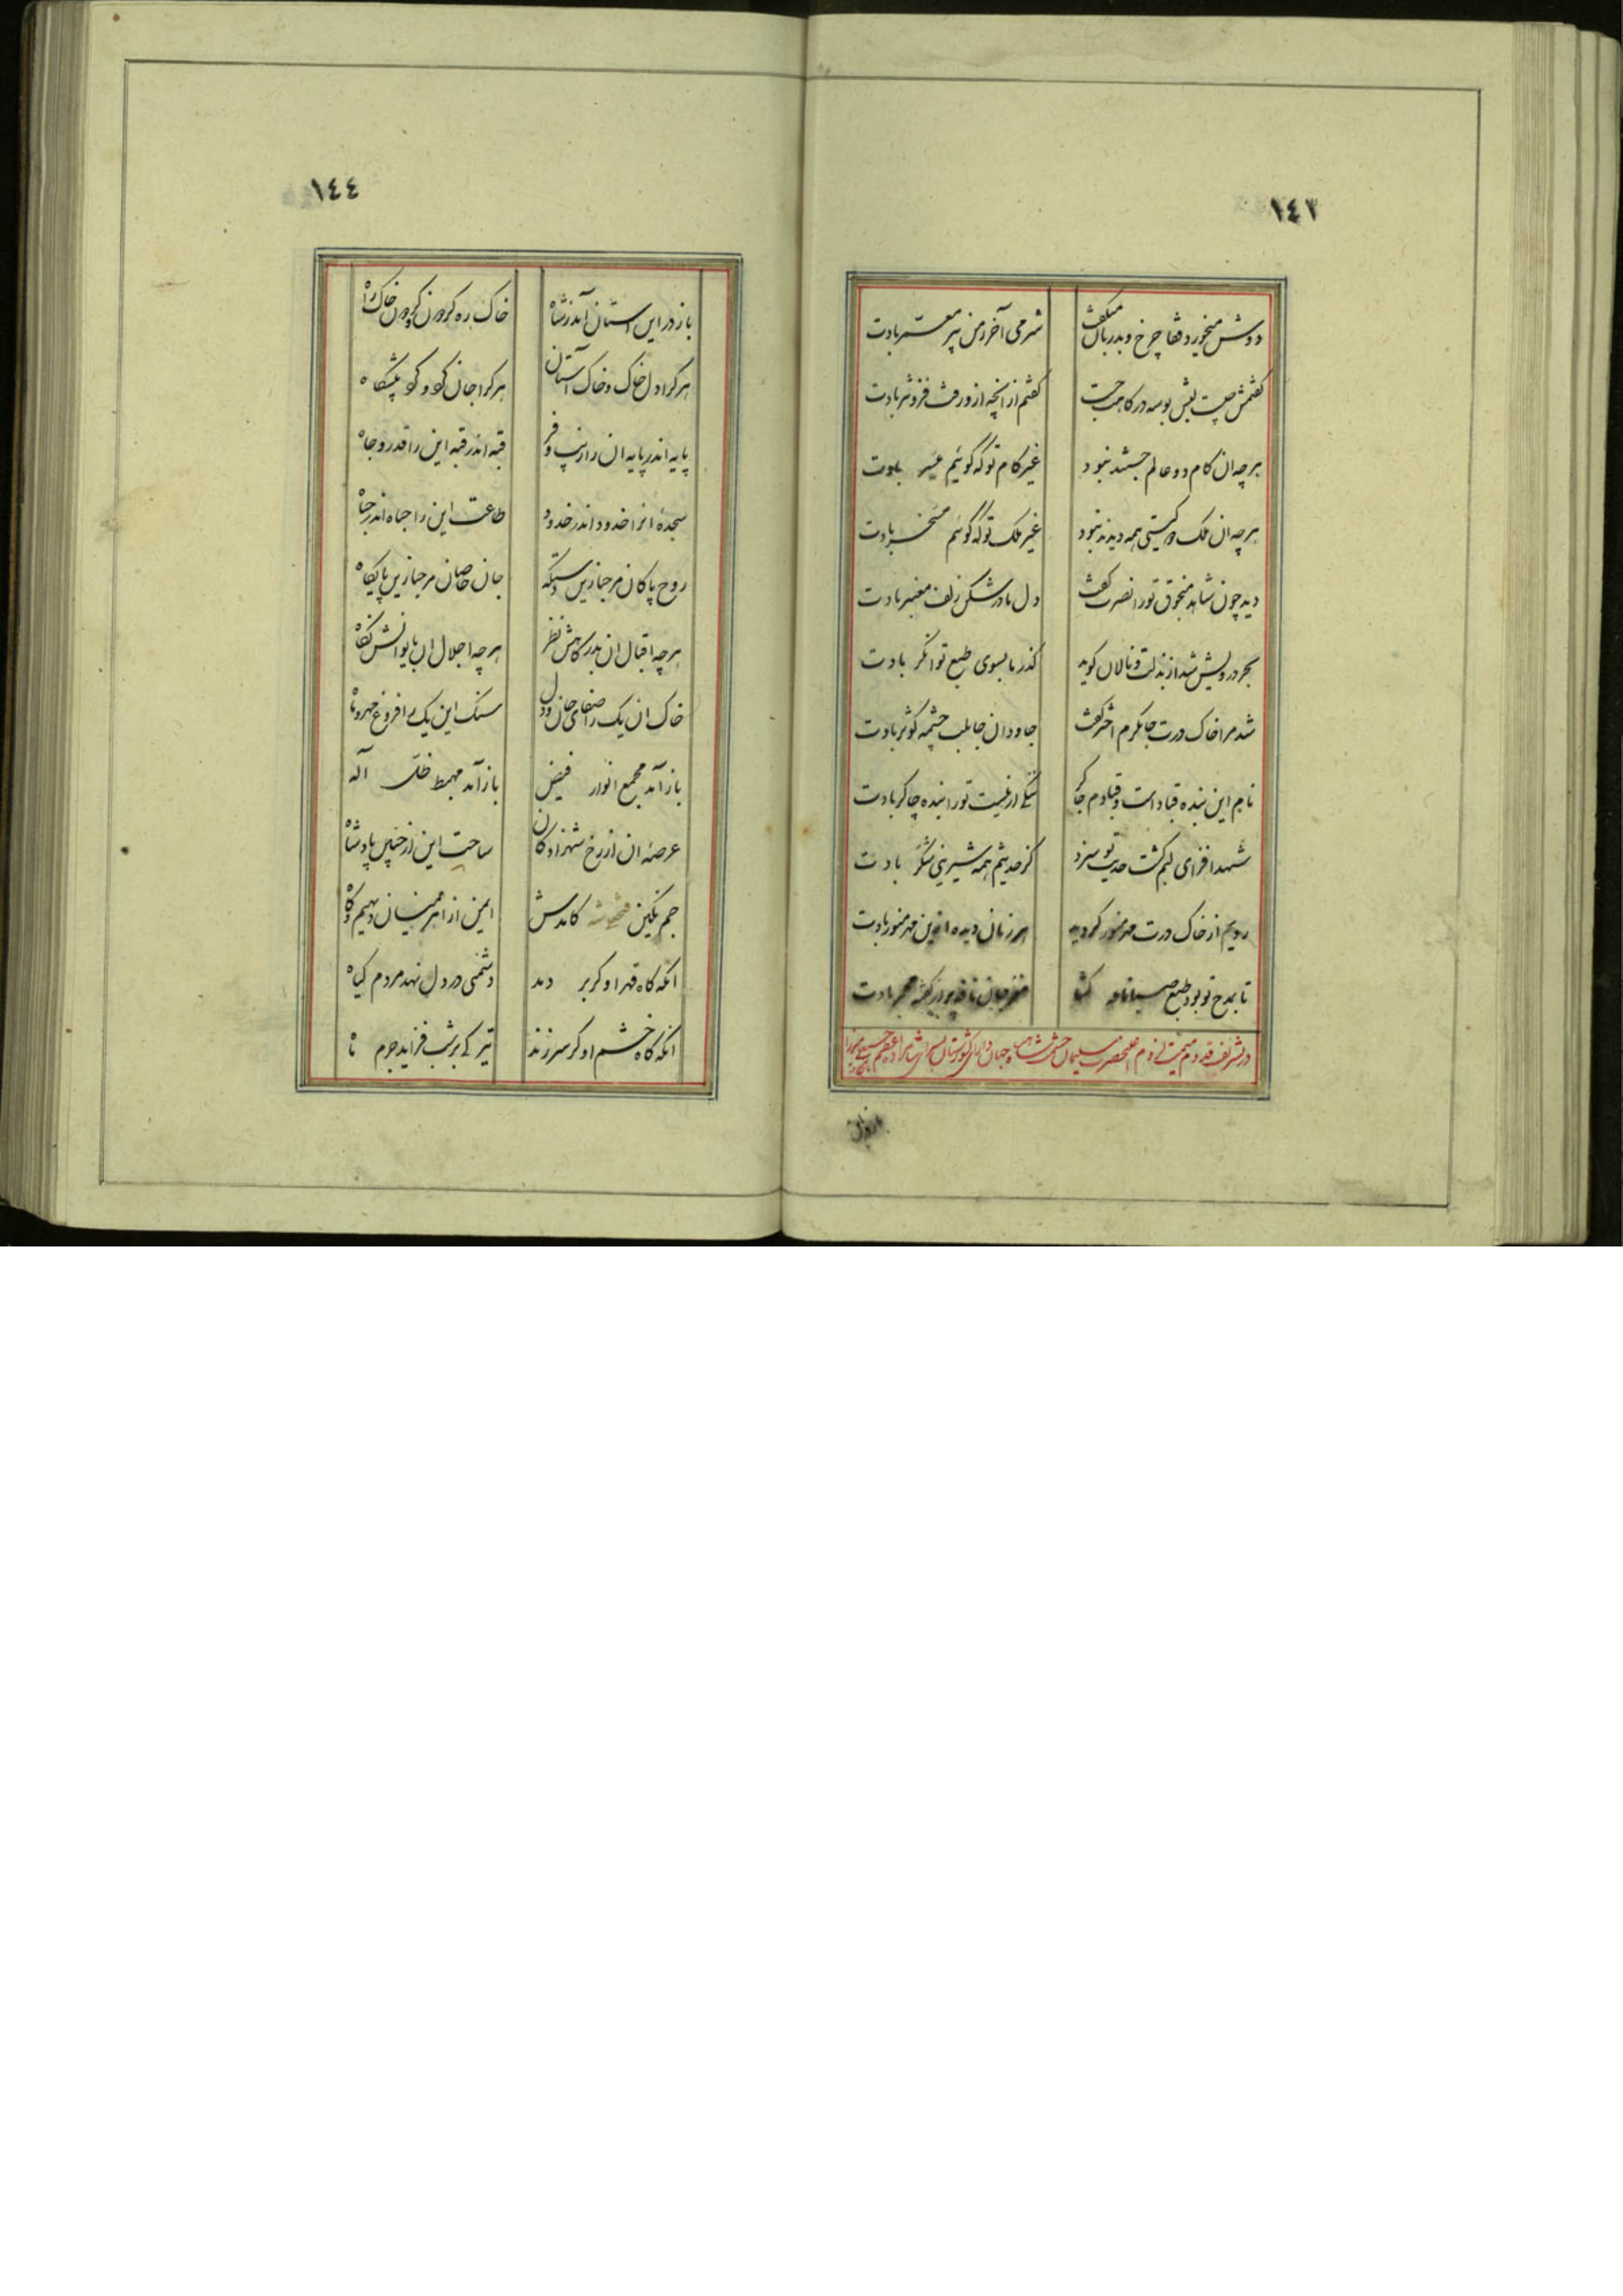 ١٤٣
دوش میخورد قفا چرخ و بدربان میگفت شرمی آخر ز من پیر معمر بادت
گفتمش چیست بلبش بوسه درگاهت جست گفتم از آنچه از و رفت فزونتر بادت
هرچه ان کام دو عالم جستند نبود غیر کام تو که گوئیم میسر بادت
هرچه ان ملک و گیتی همه دیدند نبود غیر ملک تو که گوئیم مسخر بادت
دید چون شاهد منجوق تو را نصرت گفت دل ما در شکن زلف معنبر بادت
بحر درویش شد از بذلت و نالان گوید گذر ما بسوی طبع توانگر بادت
شد مرا خاک درت جا بکرم اختر گفت جاودان جا بلب چشمه کوثر بادت
نام این بنده قباد است و قبادم چاکر ننگی ار نیست تو را بنده چاکر بادت
شهد افزای لبم گشت حدیث تو سزد کز حدیثم همه شیرینی شکر بادت
رویم از خاک درت مهر منور گردید هر زمان دیده ازین مهر منور بادت
تا بمدح تو بود طبع صبا نافه گشا مغز جان نافه پرور
در تشریف قدوم میمنت لزوم اعلیحضرت سلیمان حشمت شاهنشاه جهان دارای کشورستان بسرای شاهزاده اعظم حسینعلی میرزا
باز در این
١٤٤
باز در این استان آمد ز شاه خاک ره کردون کردون خاک راه
هر کرا دل خاک و خاک آستان هر کرا جان کو و کو پیشگاه
پایه اندر پایه ان را زیب و فر قبه اندر قبه این را قدر و جاه
سجدهٔ انرا خدود اندر خدود طاعت این را جباه اندر جباه
روح پاکان مر جبا زین دستگه جان خاصان مر جبا زین پایگاه
هرچه اقبال ان بدرگاهش نظر هرچه اجلال ان بایوانش نگاه
خاک ان یک را صفای جان و دل سنگ این یک را فروغ مهر و ماه
باز آمد مجمع انوار فیض باز آمد مهبط ظل اله
عرصهٔ ان از رخ شهزادگان ساحت این از جبین پادشاه
جم نگین فتحعلی شه کامدش ایمن از اهرمینان دیهیم و گاه
انکه گاه قهر او کر بر دمد دشمنی در دل نهد مردم گیاه
انکه گاه خشم او کر سر زند تیرگی بر شب فزاید جرم ماه